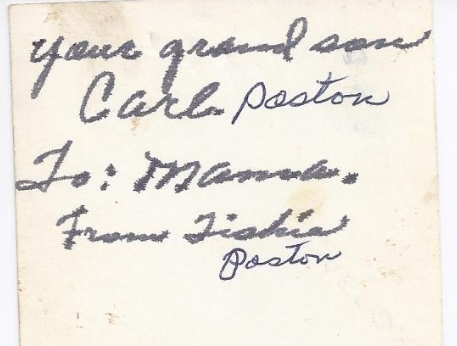 your grand son
Carl Poston
To: Mama.
From Tishia
Poston